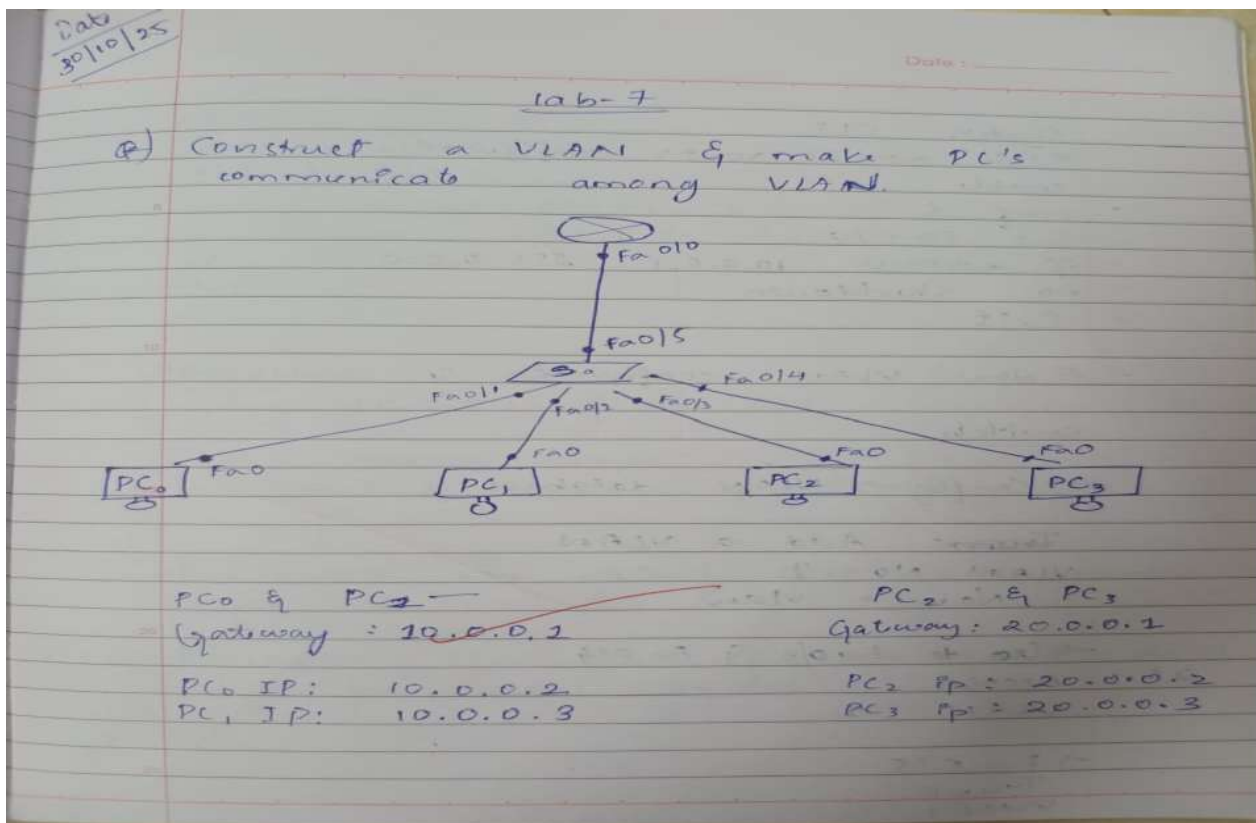 Date
30/10/25
Data :
Lab-7
Q) Construct a VLAN & make PC's
communicate among VLAN.
Fa 0/0
Fa0/5
S0
Fa0/1 Fa0/2 Fa0/3 Fa0/4
Fa0 Fa0 Fa0 Fa0
PC0 PC1 PC2 PC3
PC0 & PC2 — PC2 & PC3
Gateway : 10.0.0.1 Gateway: 20.0.0.1
PC0 IP: 10.0.0.2 PC2 Ip : 20.0.0.2
PC1 IP: 10.0.0.3 PC3 Ip : 20.0.0.3